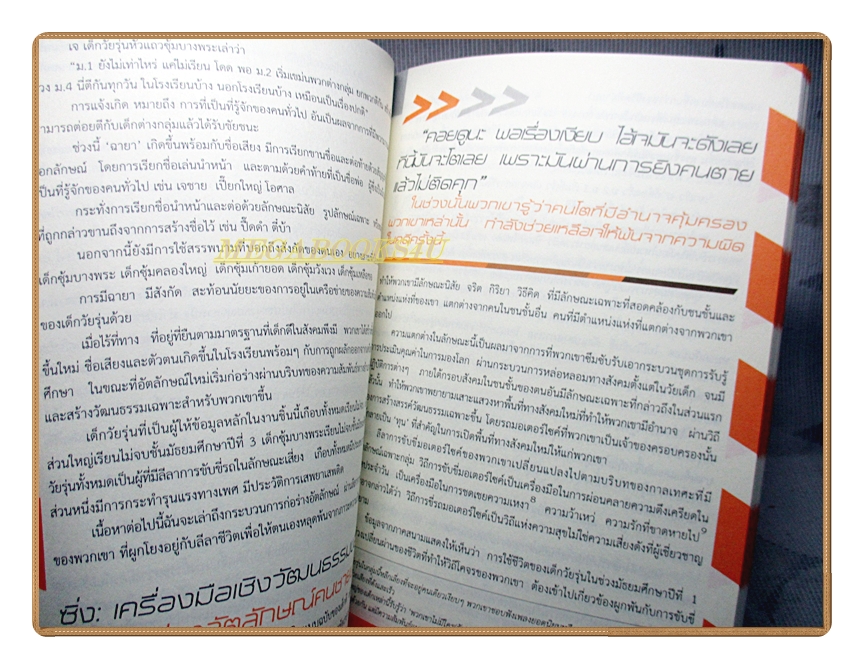 เจ เด็กวัยรุ่นหัวแถวซุ้มบางพระเล่าว่า
"ม.1 ยังไม่เท่าไหร่ แค่ไม่เรียน โดด พอ ม.2 เริ่มเขม่นพวกต่างกลุ่ม ยกพวกตีกัน
ม.4 นี่ตีกันทุกวัน ในโรงเรียนบ้าง นอกโรงเรียนบ้าง เหมือนเป็นเรื่องปกติ"
การแจ้งเกิด หมายถึง การที่เป็นที่รู้จักของคนทั่วไป อันเป็นผลจากการที่
สามารถต่อยตีกับเด็กต่างกลุ่มแล้วได้รับชัยชนะ
ช่วงนี้ 'ฉายา' เกิดขึ้นพร้อมกับชื่อเสียง มีการเรียกขานชื่อและต่อท้ายด้วย
โดยการเรียกชื่อเล่นนำหน้า และตามด้วยคำท้ายที่เป็นชื่อพ่อ
เป็นที่รู้จักของคนทั่วไป เช่น เจชาย เปี๊ยกใหญ่ โอศาล
กระทั่งการเรียกชื่อนำหน้าและต่อด้วยลักษณะนิสัย รูปลักษณ์เฉพาะ
ที่ถูกกล่าวขานถึงจากการสร้างชื่อไว้ เช่น ปี๊ดดำ ตี๋บ้า
นอกจากนี้ยังมีการใช้สรรพนามที่บอกถึงสังกัดของตนเอง
เด็กซุ้มบางพระ เด็กซุ้มคลองใหญ่ เด็กซุ้มเก้ายอด เด็กซุ้มวังเวง
การมีฉายา มีสังกัด สะท้อนนัยยะของการอยู่ในเครือข่ายของความ
ของเด็กวัยรุ่นด้วย
เมื่อไร้ที่ทาง ที่อยู่ที่ยืนตามมาตรฐานที่เด็กดีในสังคมพึงมี
ขึ้นใหม่ ชื่อเสียงและตัวตนเกิดขึ้นในโรงเรียนพร้อมๆ กับการถูกผลักออกจาก
ศึกษา ในขณะที่อัตลักษณ์ใหม่เริ่มก่อร่างผ่านบริบทของความสัมพันธ์
และสร้างวัฒนธรรมเฉพาะสำหรับพวกเขาขึ้น
เด็กวัยรุ่นที่เป็นผู้ให้ข้อมูลหลักในงานชิ้นนี้เกือบทั้งหมด
ส่วนใหญ่เรียนไม่จบชั้นมัธยมศึกษาปีที่ 3 เด็กซุ้มบางพระเรียนไม่จบชั้น
วัยรุ่นทั้งหมดเป็นผู้ที่มีลีลาการขับขี่รถในลักษณะเสี่ยง เกือบทั้งหมด
ส่วนหนึ่งมีการกระทำรุนแรงทางเพศ มีประวัติการเสพยาเสพติด
เนื้อหาต่อไปนี้ฉันจะเล่าถึงกระบวนการก่อร่างอัตลักษณ์
ของพวกเขา ที่ผูกโยงอยู่กับลีลาชีวิตเพื่อให้ตนเองหลุดพ้นจาก
ซิ่ง: เครื่องมือเชิงวัฒนธรรม
อัตลักษณ์คนชาย
MEGABOOKS4U
>>>>
"คอยดูนะ พอเรื่องเงียบ ไอ้จมันจะดังเลย
ทีนี้มันจะโตเลย เพราะมันผ่านการยิงคนตาย
แล้วไม่ติดคุก"
ในช่วงนั้นพวกเขารู้ว่าคนโตที่มีอำนาจคุ้มครอง
พวกเขาเหล่านั้น กำลังช่วยเหลือเจให้พ้นจากความผิด
ในคดีครั้งนี้
ทำให้พวกเขามีลักษณะนิสัย จริต กิริยา วิธีคิด ที่มีลักษณะเฉพาะที่สอดคล้องกับชนชั้นและ
ตำแหน่งแห่งที่ของเขา แตกต่างจากคนในชนชั้นอื่น คนที่มีตำแหน่งแห่งที่แตกต่างจากพวกเขา
ออกไป
ความแตกต่างในลักษณะนี้เป็นผลมาจากการที่พวกเขาซึมซับรับเอากระบวนชุดการรับรู้
การประเมินคุณค่าในการมองโลก ผ่านกระบวนการหล่อหลอมทางสังคมตั้งแต่ในวัยเด็ก จนมี
ปฏิบัติการต่างๆ ภายใต้กรอบสังคมในชนชั้นของตนอันมีลักษณะเฉพาะที่กล่าวถึงในส่วนแรก
ทำให้พวกเขาพยายามเสาะแสวงหาพื้นที่ทางสังคมใหม่ที่ทำให้พวกเขามีอำนาจ ผ่านวิธี
การสร้างสรรค์วัฒนธรรมเฉพาะขึ้น โดยรถมอเตอร์ไซค์ที่พวกเขาเป็นเจ้าของครอบครองนั้น
กลายเป็น 'ทุน' ที่สำคัญในการเปิดพื้นที่ทางสังคมใหม่ให้แก่พวกเขา
ลีลาการขับขี่มอเตอร์ไซค์ของพวกเขาเปลี่ยนแปลงไปตามบริบทของกาลเทศะที่มี
ลักษณะเฉพาะกลุ่ม วิธีการขับขี่มอเตอร์ไซค์เป็นเครื่องมือในการผ่อนคลายความตึงเครียดใน
ประจำวัน เป็นเครื่องมือในการชดเชยความเหงา8 ความว้าเหว่ ความรักที่ขาดหายไป9
อาจกล่าวได้ว่า วิธีการขี่รถมอเตอร์ไซค์เป็นวิถีแห่งความสุขไม่ใช่ความเสี่ยงดังที่ผู้เชี่ยวชาญ
ข้อมูลจากภาคสนามแสดงให้เห็นว่า การใช้ชีวิตของเด็กวัยรุ่นในช่วงมัธยมศึกษาปีที่ 1
เปลี่ยนผ่านของชีวิตที่ทำให้วิถีโคจรของพวกเขา ต้องเข้าไปเกี่ยวข้องผูกพันกับการขับขี่